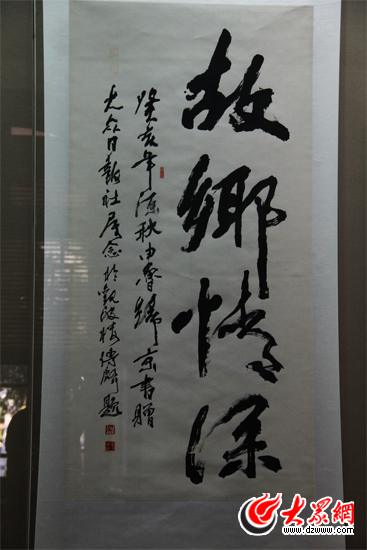 故鄉情深
癸亥年深秋由魯歸京書贈
大众日報社屬念於觀海樓傅麟題
大眾網
www.dzwww.com